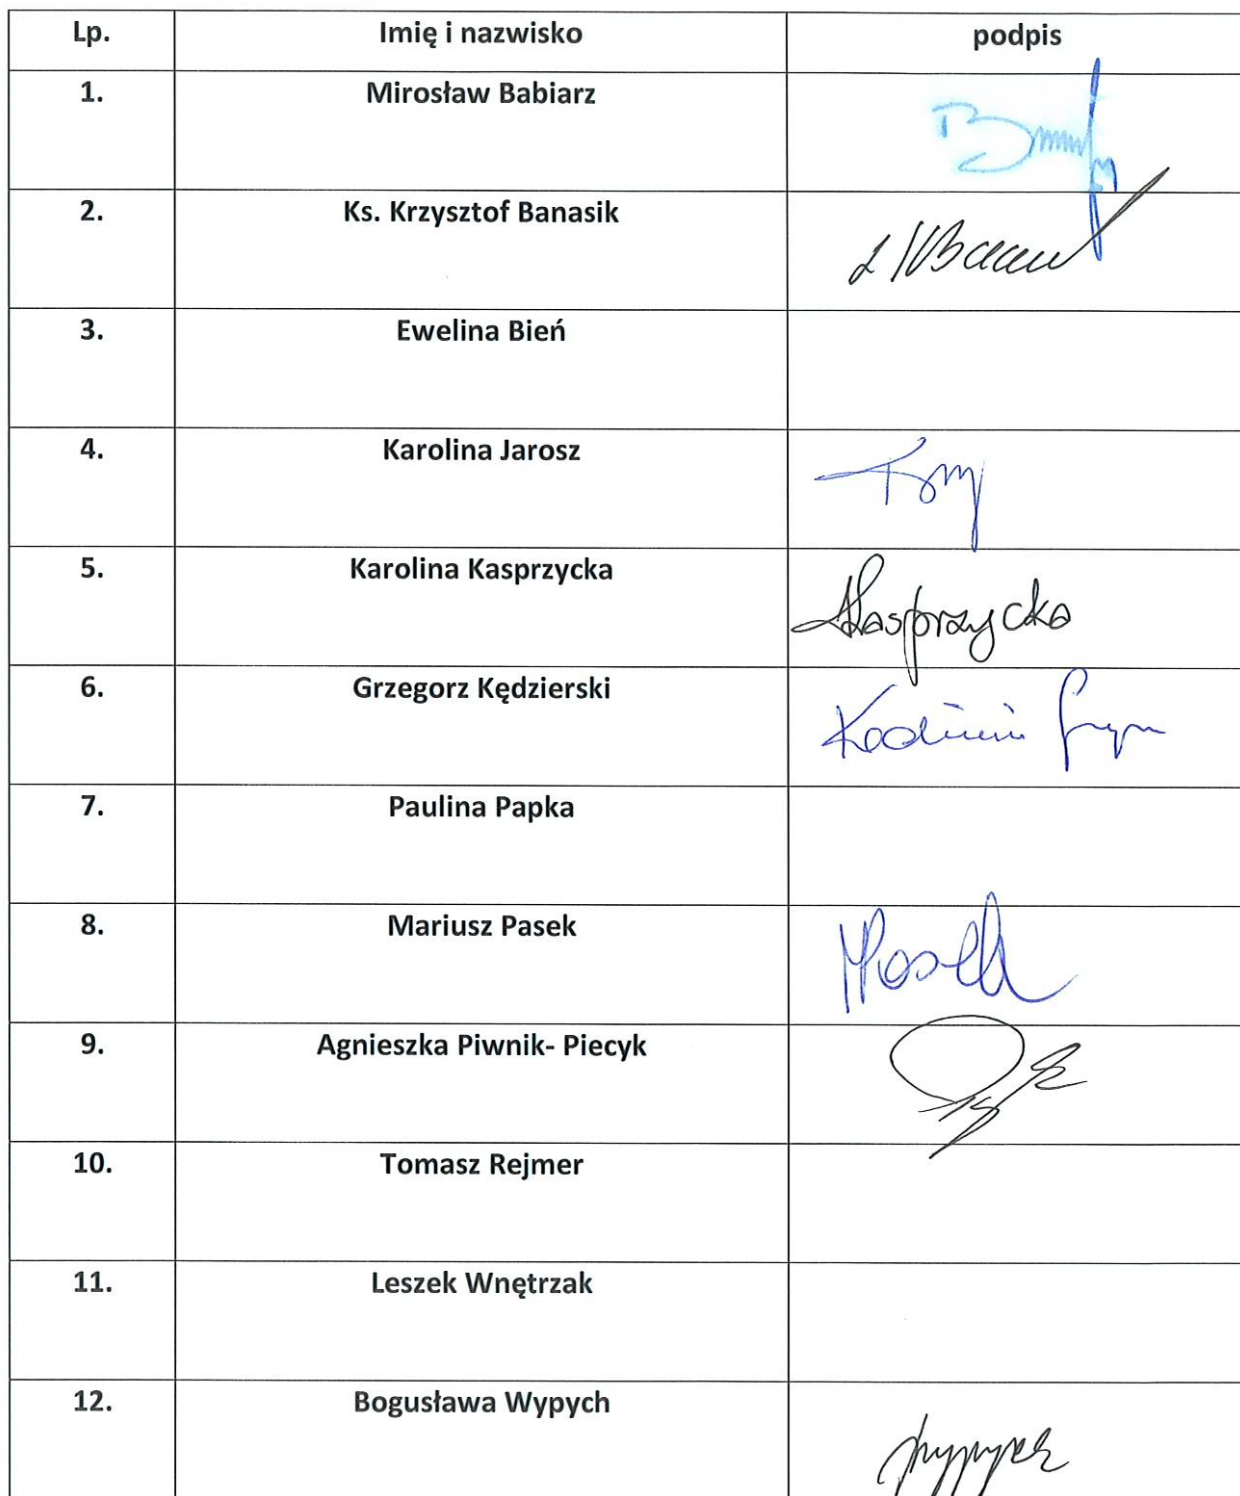 Lp. Imię i nazwisko podpis
1. Mirosław Babiarz
2. Ks. Krzysztof Banasik
3. Ewelina Bień
4. Karolina Jarosz
5. Karolina Kasprzycka Kasprzycka
6. Grzegorz Kędzierski
7. Paulina Papka
8. Mariusz Pasek
9. Agnieszka Piwnik- Piecyk
10. Tomasz Rejmer
11. Leszek Wnętrzak
12. Bogusława Wypych